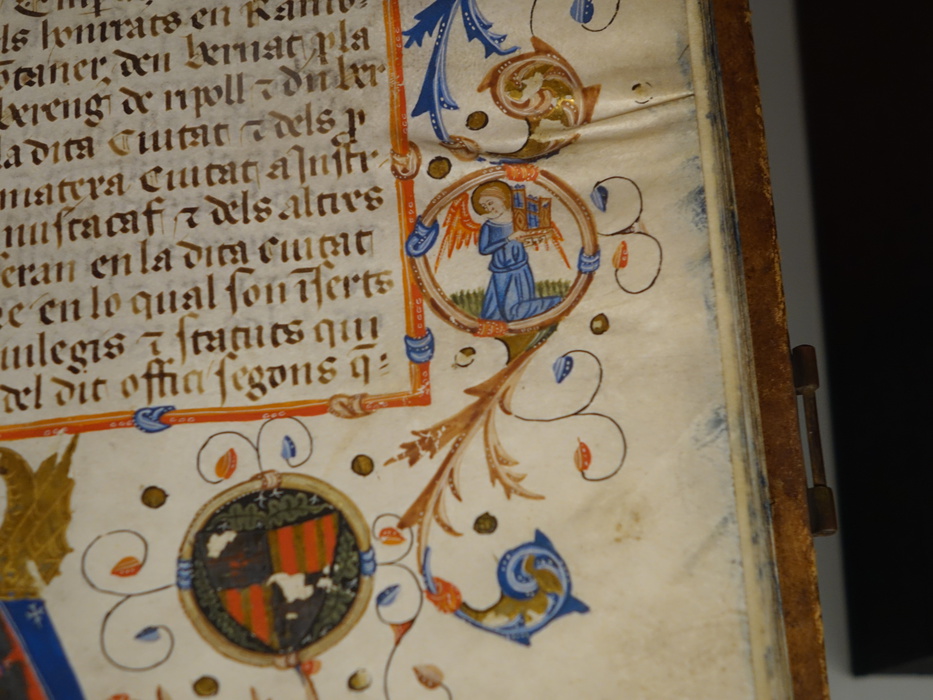 ls honrats en Ramo
taner, den bernat pla
bereng de ripoll ⁊ dn ber
la dita Ciutat ⁊ dels p
matexa Ciutat a Instr
mustacaf ⁊ dels altres
seran en la dita ciutat
re en lo qual son īserts
uilegis ⁊ statuts qui
del dit offici segons q̄